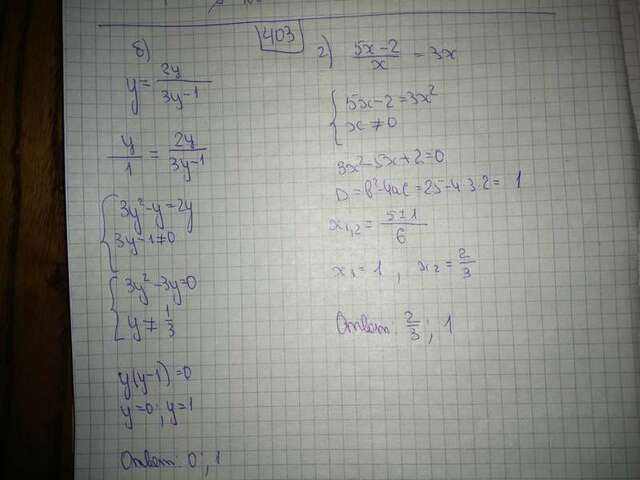 403
б)
y = 2y / 3y-1
y/1 = 2y / 3y-1
{ 3y²-y=2y
3y-1≠0
{ 3y²-3y=0
y ≠ 1/3
y(y-1)=0
y=0; y=1
Ответ: 0; 1
г) 5x-2 / x = 3x
{ 5x-2=3x²
x≠0
3x²-5x+2=0
D=b²-4ac=25-4·3·2= 1
x₁,₂= 5±1 / 6
x₁=1, x₂= 2/3
Ответ: 2/3; 1